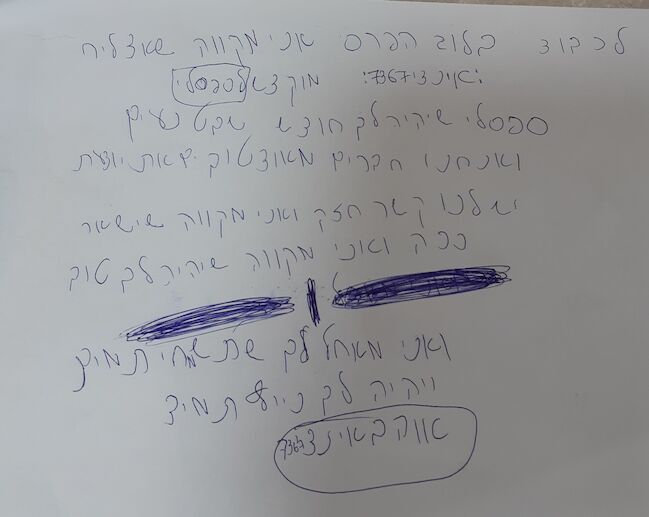 לכבוד בלוג הפרס אני מקווה שאצליח
:אינצי7367: מוקדש לספסלי
ספסלי שיהיה לך חודש שבט נעים
ואנחנו חברים מאוד טוב ים את יודעת
יש לנו קשר חזק ואני מקווה שישאר
ככה ואני מקווה שיהיה לך טוב
ואני מאחל לך שתשמחי תמיד
ויהיה לך כייף תמיד
אוהב אינצי7367